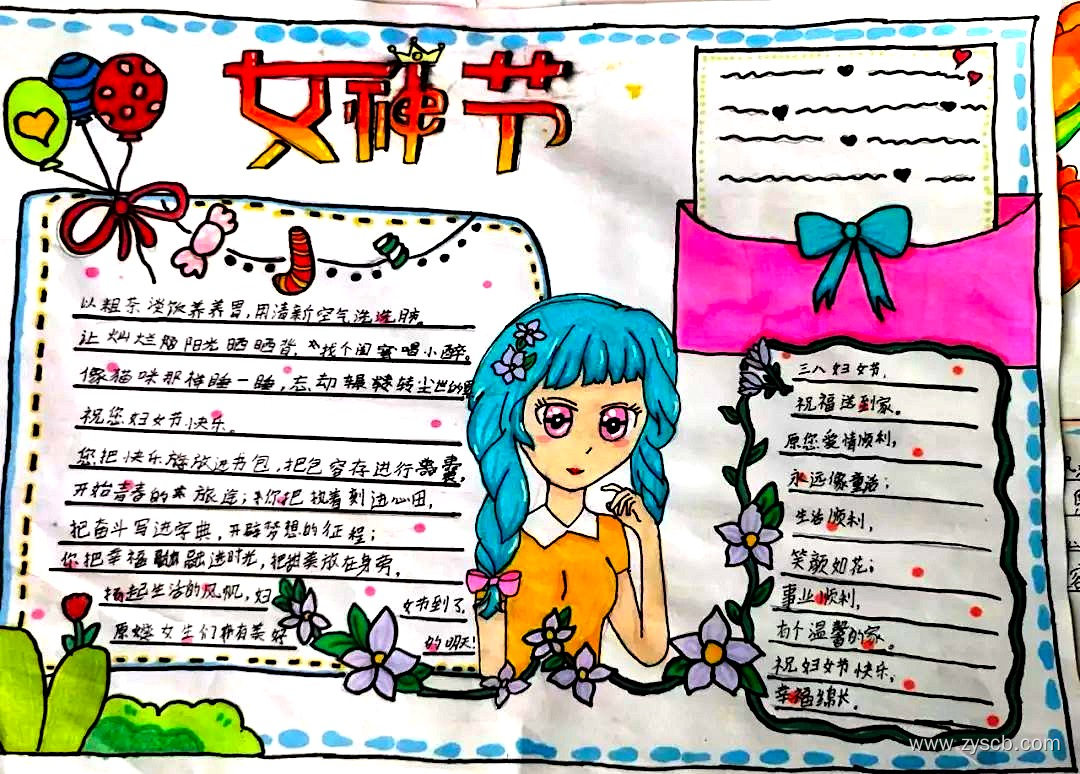 女神节
以粗茶淡饭养养胃,用清新空气洗洗肺。
让灿烂阳光晒晒背,找个闺蜜唱小醉。
像猫咪那样睡一睡,忘却辗转尘世的
祝您妇女节快乐。
您把快乐放进书包,把包容存进行囊,
开始青春的旅途;你把执着刻进心田,
把奋斗写进字典,开辟梦想的征程;
你把幸福融进时光,把甜美放在身旁,
扬起生活的风帆,妇女节到了
原女生们拥有美好的明天!
三八妇女节,
祝福送到家。
原您爱情顺利,
永远像童话;
生活顺利,
笑颜如花;
事业顺利,
有个温馨的家。
祝妇女节快乐,
幸福绵长。
www.zyscb.com